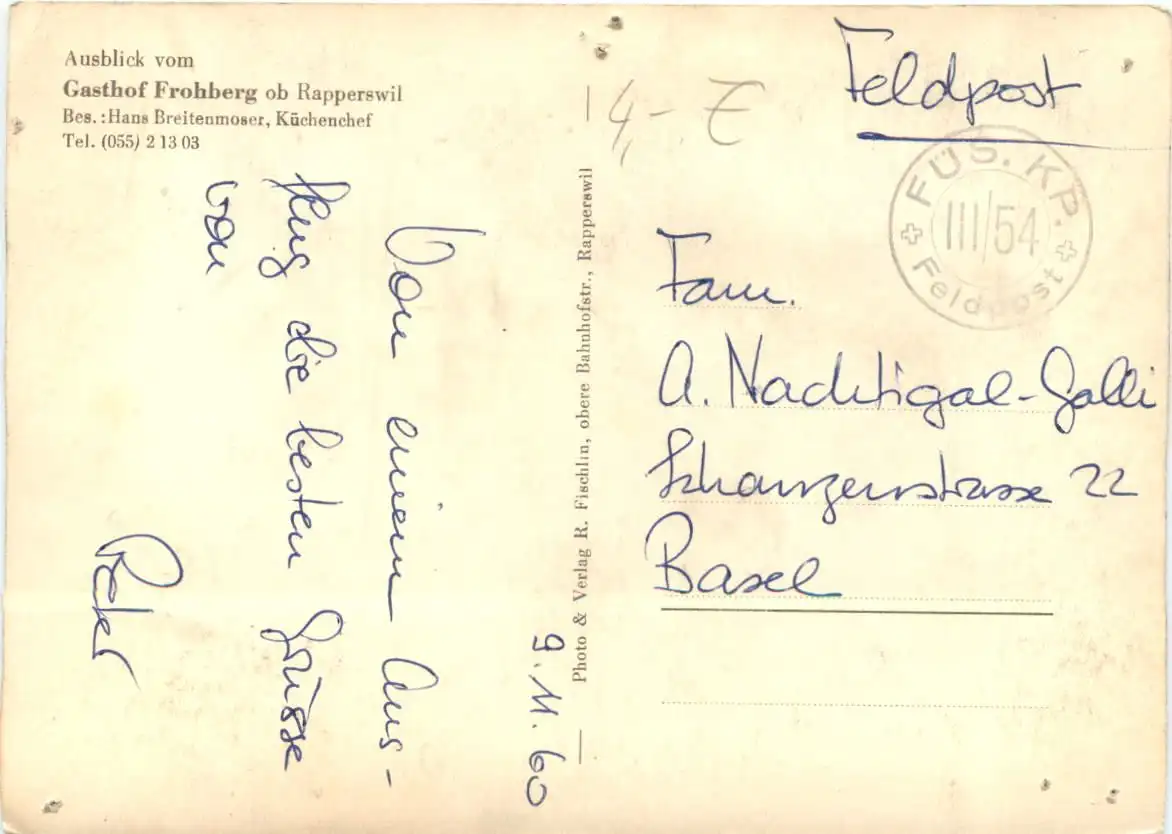 Ausblick vom
Gasthof Frohberg ob Rapperswil
Bes.: Hans Breitenmoser, Küchenchef
Tel. (055) 2 13 03
9. 11. 60
Von einem Aus-
flug die besten Grüsse
von
Peter
Photo & Verlag R. Fischlin, obere Bahnhofstr., Rapperswil
14,- E
Feldpost
FÜS. KP.
III/54
Feldpost
Fam.
A. Nachtigal-Galli
Schanzenstrasse 22
Basel